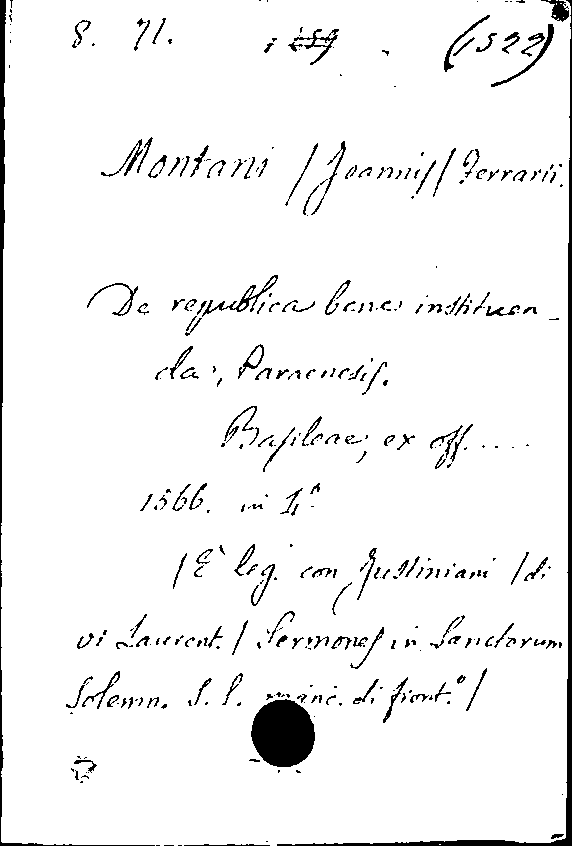 8. 71. (1522)
Montani /Joannis/ Ferrarii.
De republica bene instituen-
da, Paraenesis.
Basileae, ex off.....
1566. in
/È leg. con Justiniani /di
vi Laurent./ Sermones in Sanctorum
Solemn. S. l. manc. di front.º/